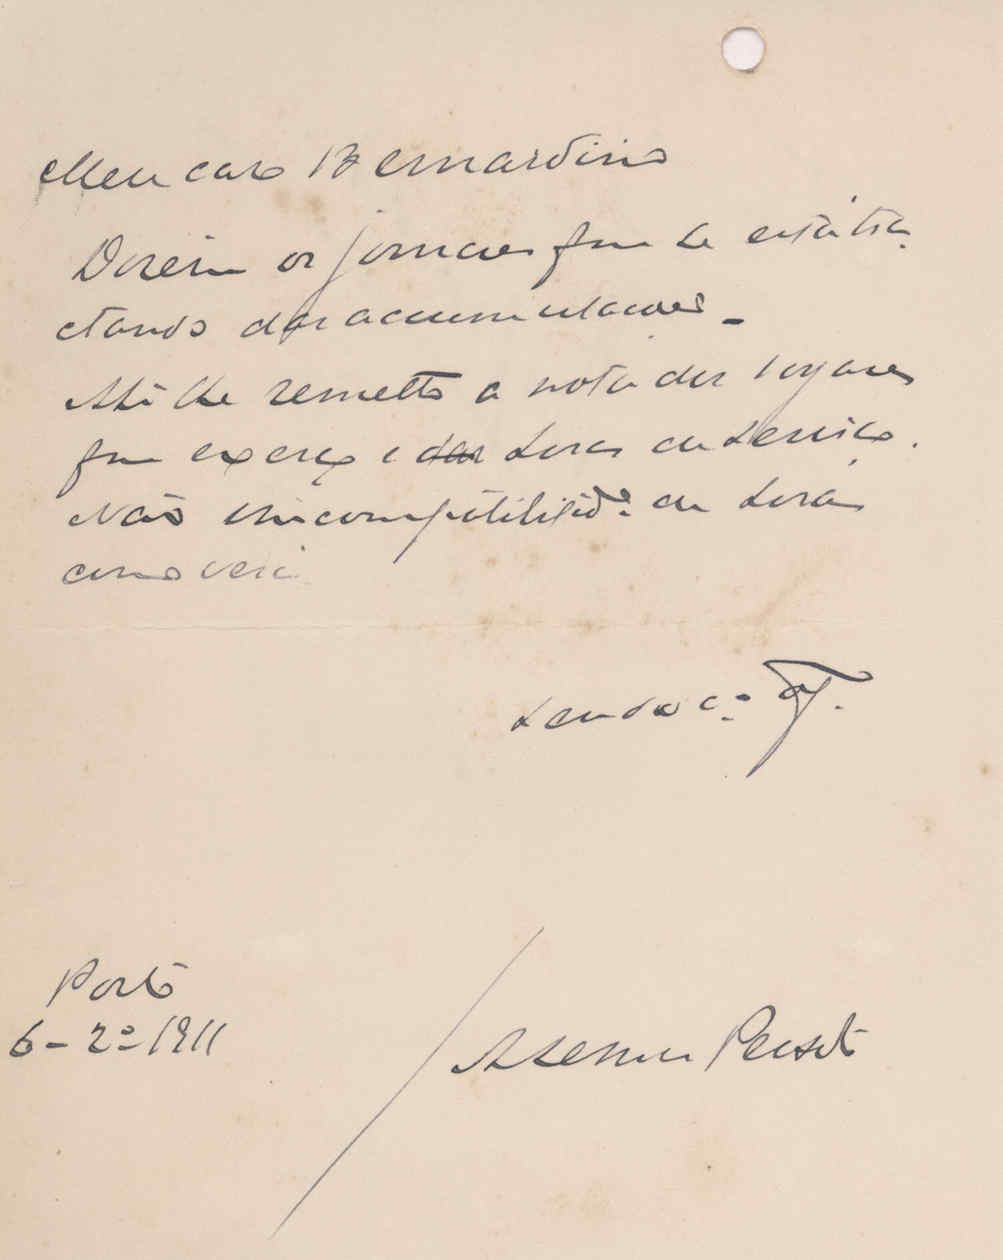 Meu caro Bernardino
Dizem os jornaes que se está tra-
ctando das accumulações.
Ahi lhe remetto a nota dos logares
que exerço e das horas de serviço.
Não ha incompatibilid.e de horas
como verá.
Porto
6-2º-1911
Peixoto